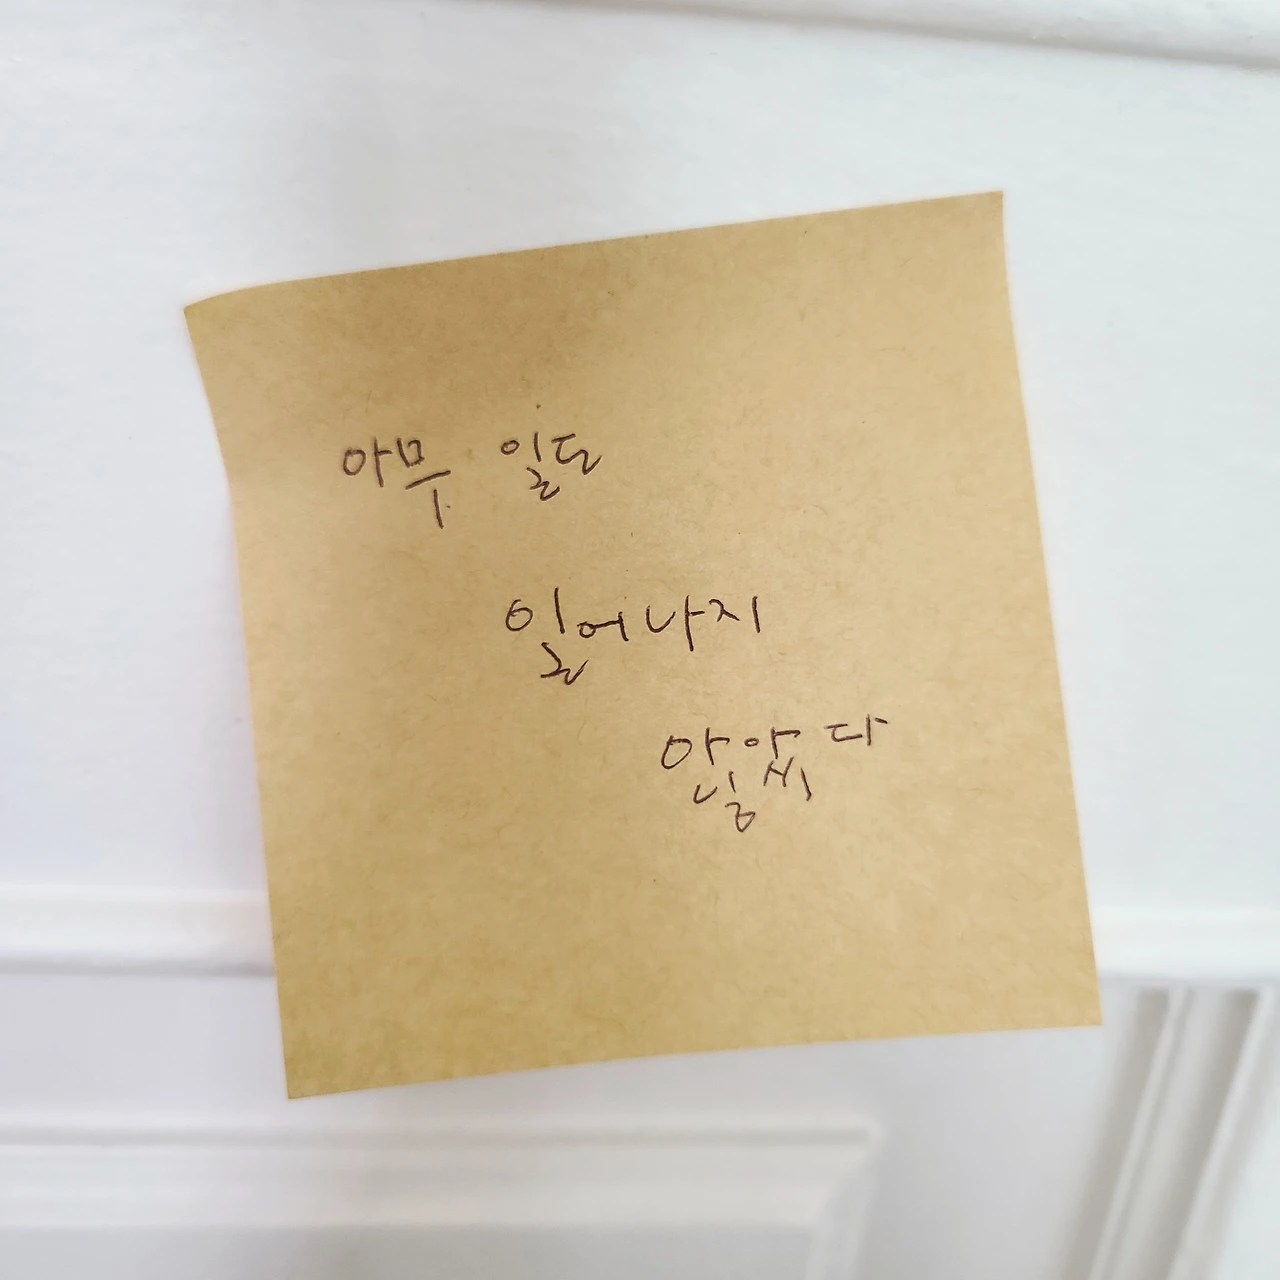 아무 일도
일어나지
않았다